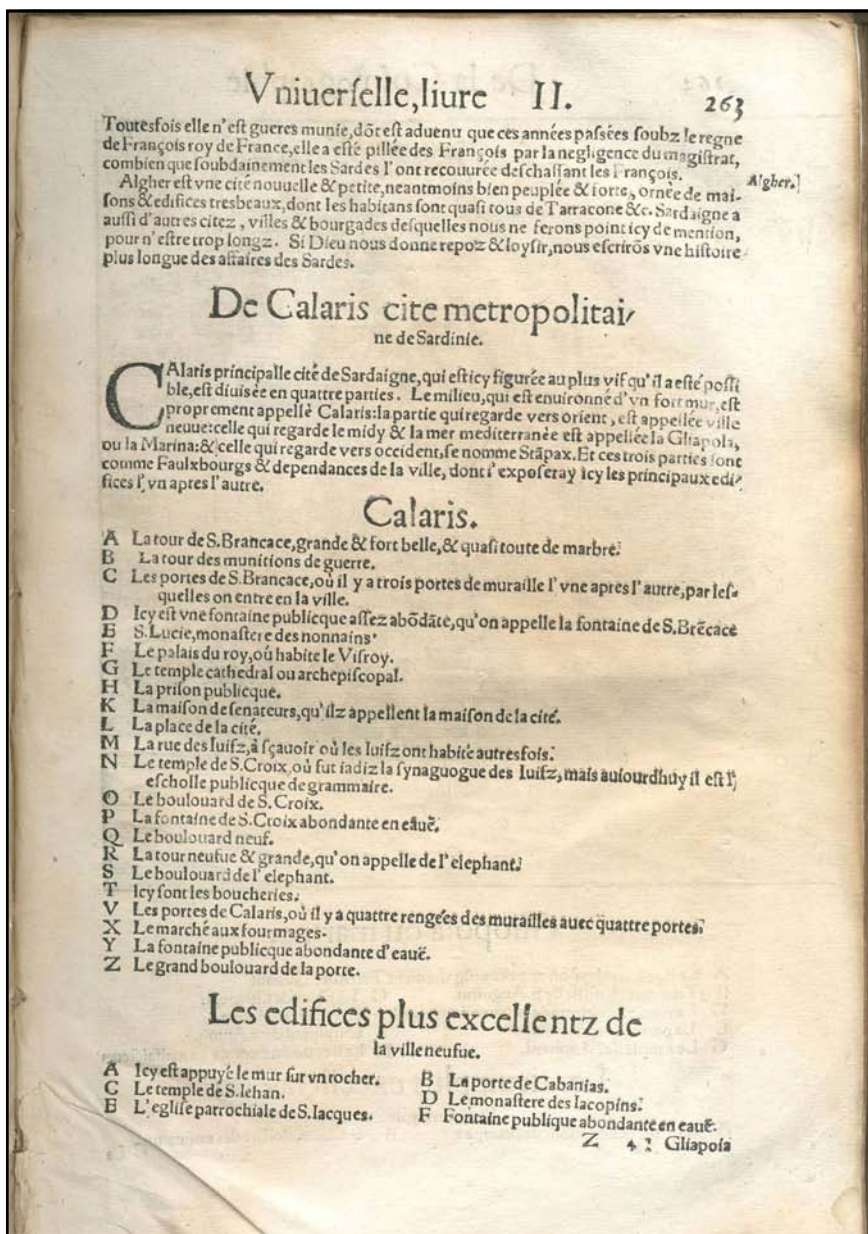 Vniuerſelle, liure II. 263
Toutesfois elle n'eſt gueres munie, dõt eſt aduenu que ces années paſsées ſoubz le regne
de François roy de France, elle a eſté pillée des François par la negligence du magiſtrat,
combien que ſoubdainement les Sardes l'ont recouurée deſchaſſant les François.
Algher eſt vne cité nouuelle & petite, neantmoins bien peuplée & forte, ornée de mai-
Algher.
ſons & edifices tresbeaux, dont les habitans ſont quaſi tous de Tarracone &c. Sardaigne a
auſſi d'autres citez, villes & bourgades deſquelles nous ne ferons point icy de mention,
pour n'eſtre trop longz. Si Dieu nous donne repoz & loyſir, nous eſcrirõs vne hiſtoire
plus longue des affaires des Sardes.
De Calaris cite metropolitai-
ne de Sardinie.
CAlaris principalle cité de Sardaigne, qui eſt icy figurée au plus vif qu'il a eſté poſſi
ble, eſt diuisée en quattre parties. Le milieu, qui eſt enuironné d'vn fort mur, eſt
proprement appellé Calaris: la partie qui regarde vers orient, eſt appellée ville
neuue: celle qui regarde le midy & la mer mediterranée eſt appellée la Gliapola,
ou la Marina: & celle qui regarde vers occident, ſe nomme Stãpax. Et ces trois parties ſont
comme Faulxbourgs & dependances de la ville, dont i'expoſeray icy les principaux edi-
fices l'vn apres l'autre.
Calaris.
A La tour de S. Brancace, grande & fort belle, & quaſi toute de marbre.
B La tour des munitions de guerre.
C Les portes de S. Brancace, où il y a trois portes de muraille l'vne apres l'autre, par leſ-
quelles on entre en la ville.
D Icy eſt vne fontaine publicque aſſez abõdãte, qu'on appelle la fontaine de S. Brẽcace
E S. Lucie, monaſtere des nonnains.
F Le palais du roy, où habite le Viſroy.
G Le temple cathedral ou archepiſcopal.
H La priſon publicque.
K La maiſon de ſenateurs, qu'ilz appellent la maiſon de la cité.
L La place de la cité.
M La rue des Iuifz, à ſçauoir où les Iuifz ont habité autresfois.
N Le temple de S. Croix, où fut iadiz la ſynaguogue des Iuifz, mais auiourdhuy il eſt l'
eſcholle publicque de grammaire.
O Le boulouard de S. Croix.
P La fontaine de S. Croix abondante en eauë.
Q Le boulouard neuf.
R La tour neufue & grande, qu'on appelle de l'elephant.
S Le boulouard de l'elephant.
T Icy ſont les boucheries.
V Les portes de Calaris, où il y a quattre rengées des murailles auec quattre portes.
X Le marché aux fourmages.
Y La fontaine publicque abondante d'eauë.
Z Le grand boulouard de la porte.
Les edifices plus excellentz de
la ville neufue.
A Icy eſt appuyé le mur ſur vn rocher. B La porte de Cabanias.
C Le temple de S. Iehan. D Le monaſtere des Iacopins.
E L'egliſe parrochiale de S. Iacques. F Fontaine publique abondante en eauë.
Z 4 Gliapola